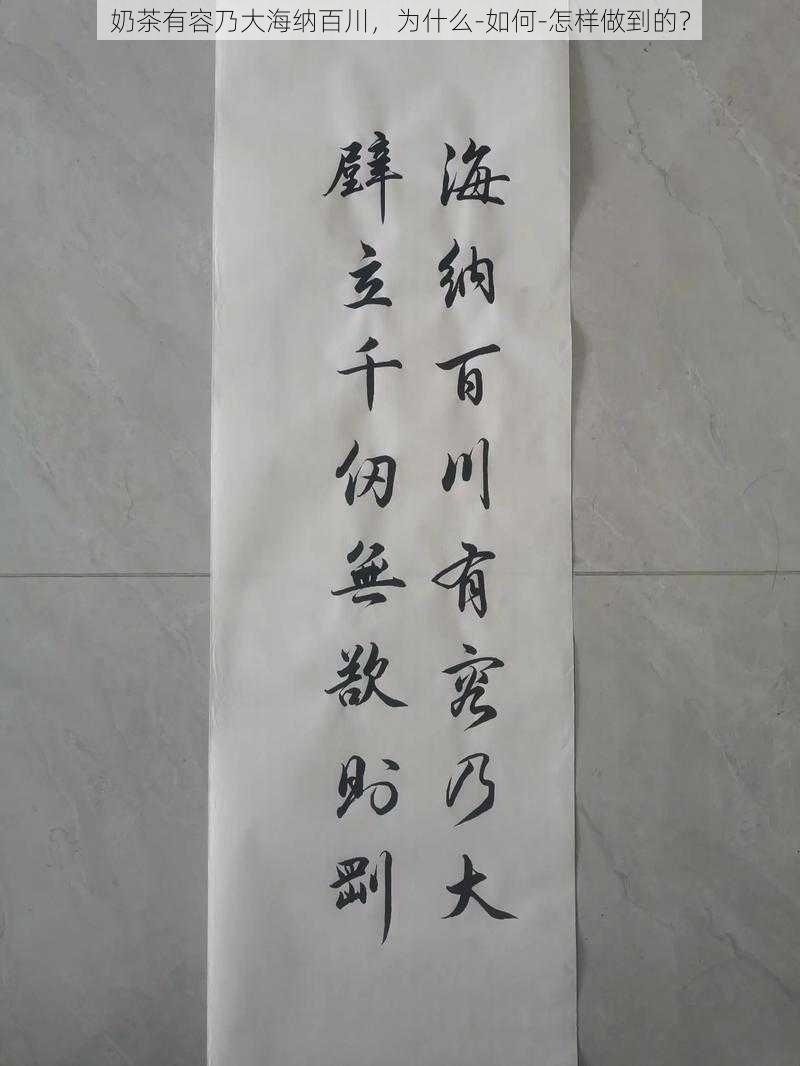 奶茶有容乃大海纳百川，为什么-如何-怎样做到的？
海纳百川有容乃大
壁立千仞無欲則剛